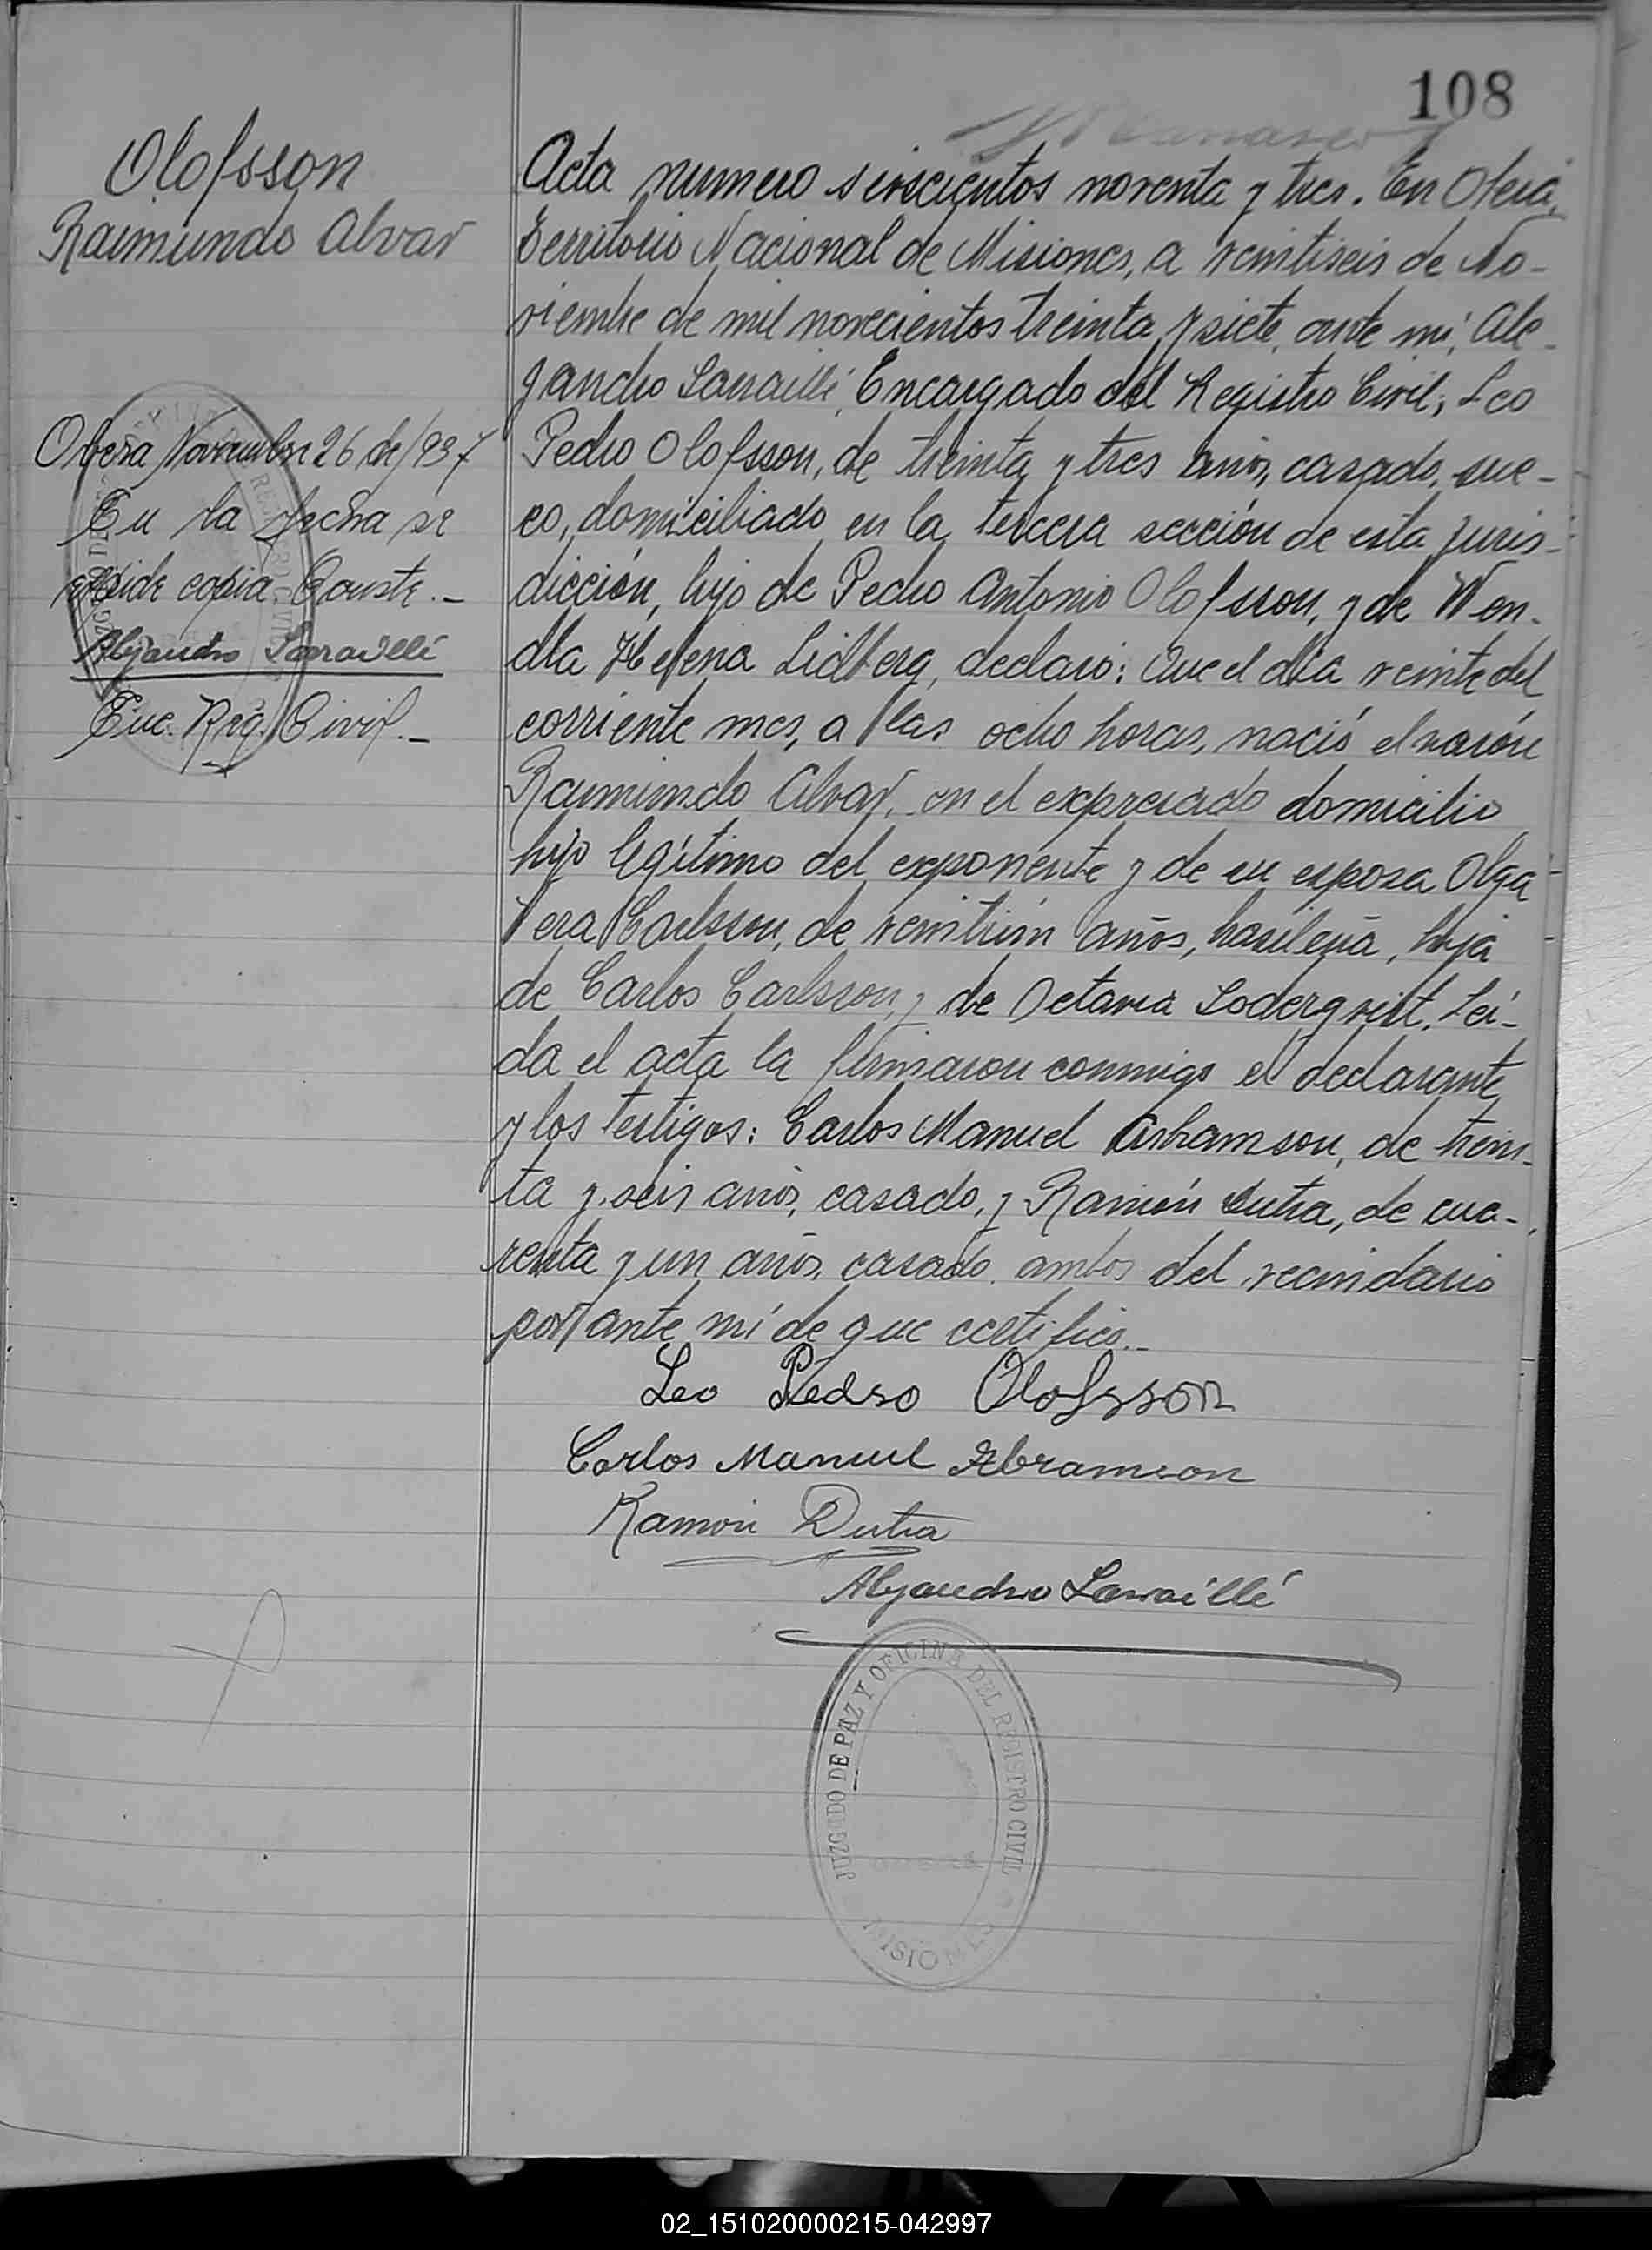 108
Olofsson
Raimundo Alvar
Obera Noviembre 26 de 1937
En la fecha se
expide copia. Conste._
Alejandro Larraillé
Enc. Reg. Civil._
Acta numero seiscientos noventa y tres. En Oberá,
Territorio Nacional de Misiones, a veintiseis de No-
viembre de mil novecientos treinta y siete, ante mi, Ale-
jandro Larraillé, Encargado del Registro Civil, Leo
Pedro Olofsson, de treinta y tres años, casado, sue-
co, domiciliado en la tercera sección de esta juris-
dicción, hijo de Pedro Antonio Olofsson, y de Wen-
dla Helena Lidberg, declaró: Que el día veinte del
corriente mes, a las ocho horas, nació el varón
Raimundo Alvar, en el expresado domicilio
hijo legítimo del exponente y de su esposa Olga
Vera Carlsson, de veintiún años, brasileña, hija
de Carlos Carlsson, y de Octavia Soderqvist. Leí-
da el acta la firmaron conmigo el declarante
y los testigos: Carlos Manuel Abramson, de trein-
ta y seis años, casado, y Ramón Dutra, de cua-
renta y un años, casado, ambos del vecindario
por ante mí de que certifico._
Leo Pedro Olofsson
Carlos Manuel Abramson
Ramon Dutra
Alejandro Larraillé
JUZGADO DE PAZ Y OFICINA DEL REGISTRO CIVIL
MISIONES
02_151020000215-042997